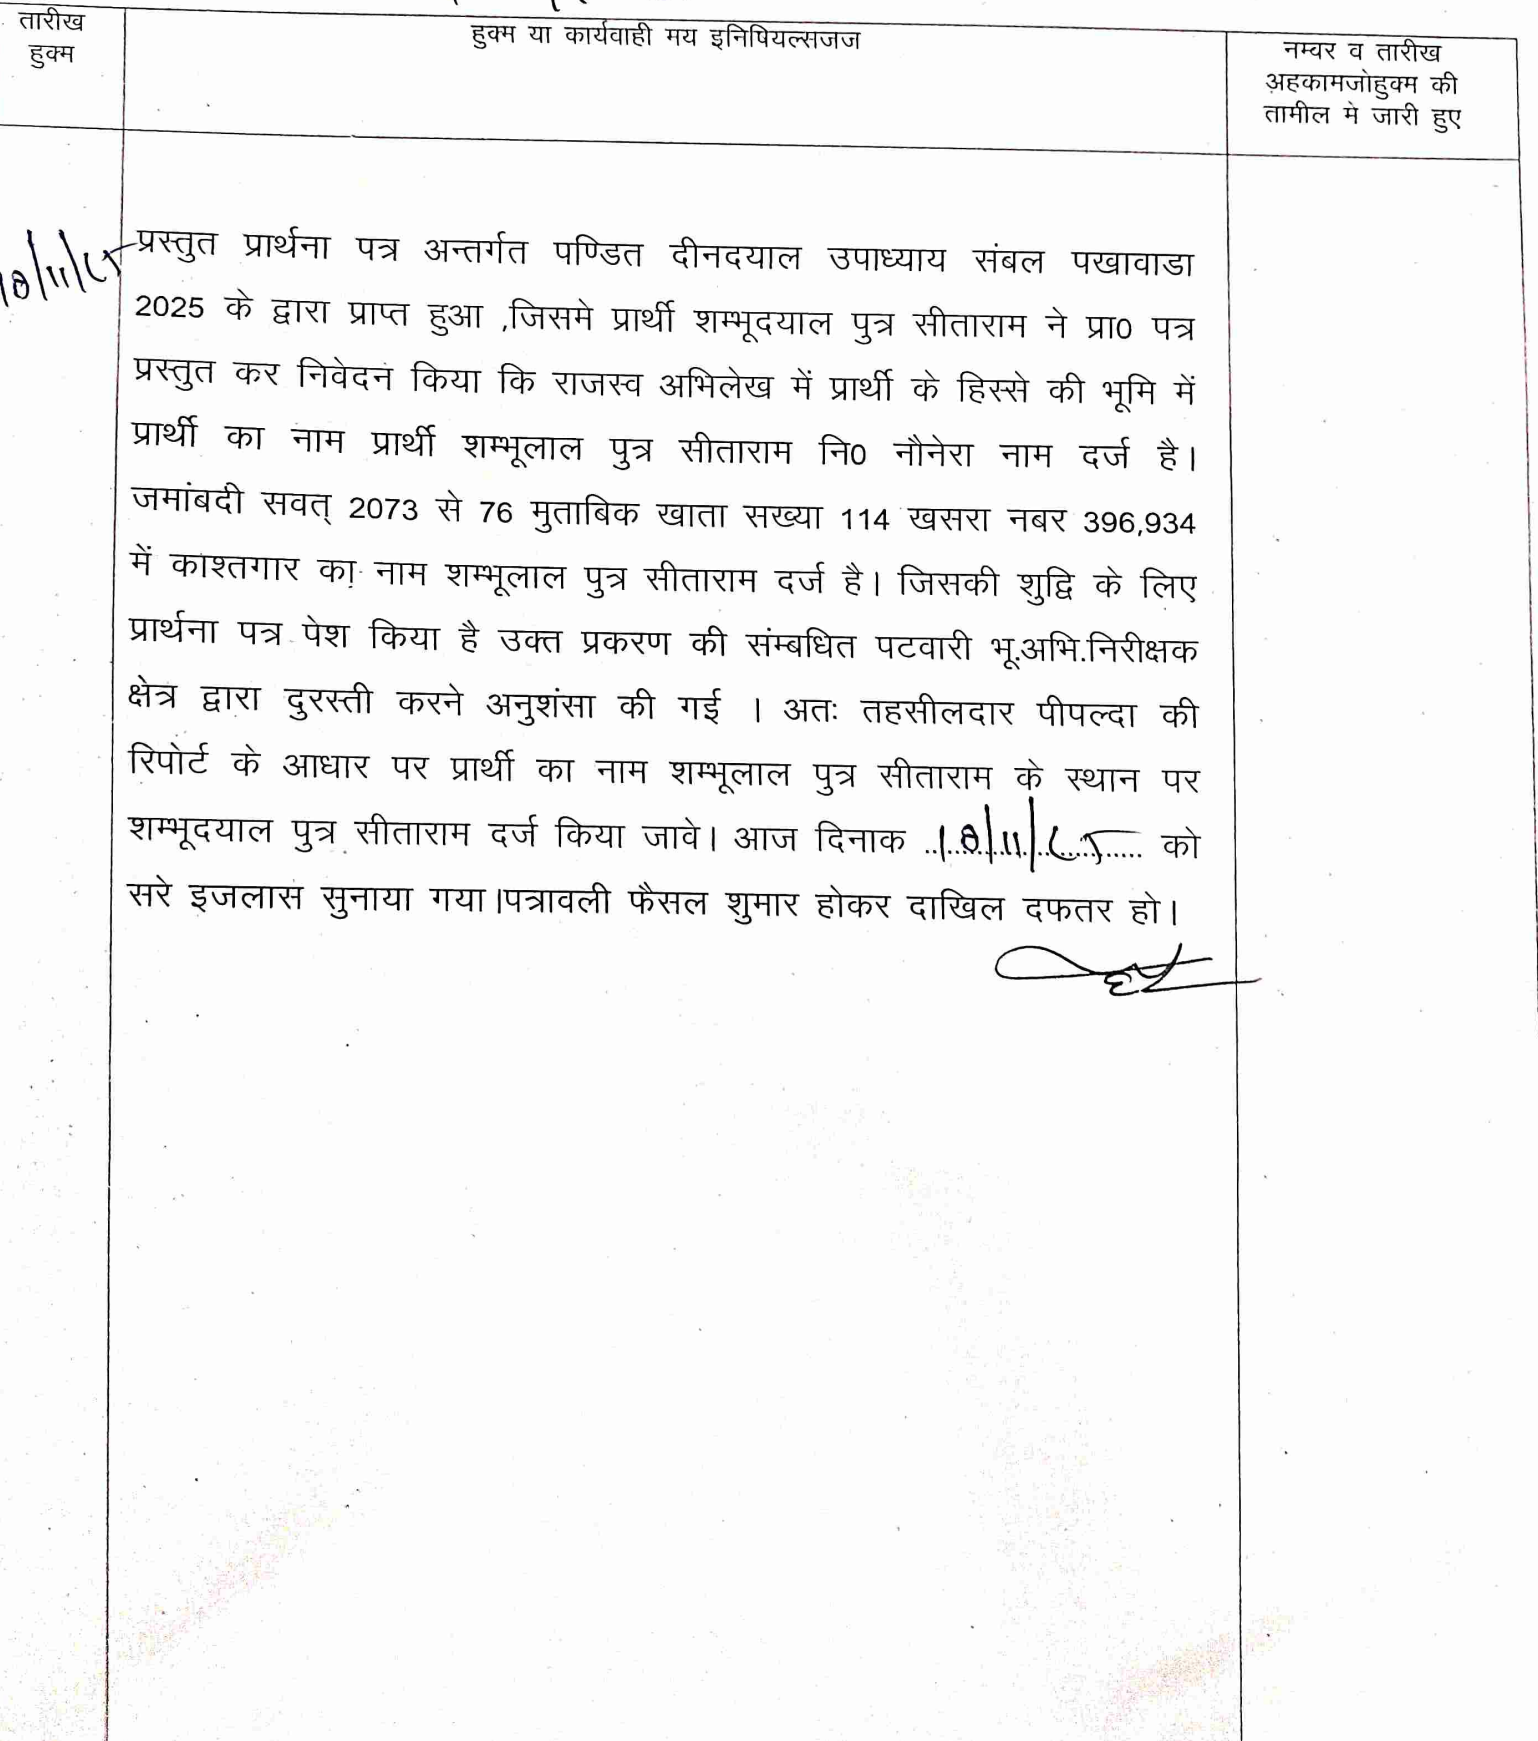 तारीख
हुक्म
हुक्म या कार्यवाही मय इनिषियल्सजज
नम्वर व तारीख
अहकामजोहुक्म की
तामील मे जारी हुए
प्रस्तुत प्रार्थना पत्र अन्तर्गत पण्डित दीनदयाल उपाध्याय संबल पखावाडा
2025 के द्वारा प्राप्त हुआ ,जिसमे प्रार्थी शम्भूदयाल पुत्र सीताराम ने प्रा0 पत्र
प्रस्तुत कर निवेदन किया कि राजस्व अभिलेख में प्रार्थी के हिस्से की भूमि में
प्रार्थी का नाम प्रार्थी शम्भूलाल पुत्र सीताराम नि0 नौनेरा नाम दर्ज है।
जमांबदी सवत् 2073 से 76 मुताबिक खाता सख्या 114 खसरा नबर 396,934
में काश्तगार का नाम शम्भूलाल पुत्र सीताराम दर्ज है। जिसकी शुद्वि के लिए
प्रार्थना पत्र पेश किया है उक्त प्रकरण की संम्बधित पटवारी भू.अभि.निरीक्षक
क्षेत्र द्वारा दुरस्ती करने अनुशंसा की गई । अतः तहसीलदार पीपल्दा की
रिपोर्ट के आधार पर प्रार्थी का नाम शम्भूलाल पुत्र सीताराम के स्थान पर
शम्भूदयाल पुत्र सीताराम दर्ज किया जावे। आज दिनाक को
सरे इजलास सुनाया गया।पत्रावली फैसल शुमार होकर दाखिल दफतर हो।